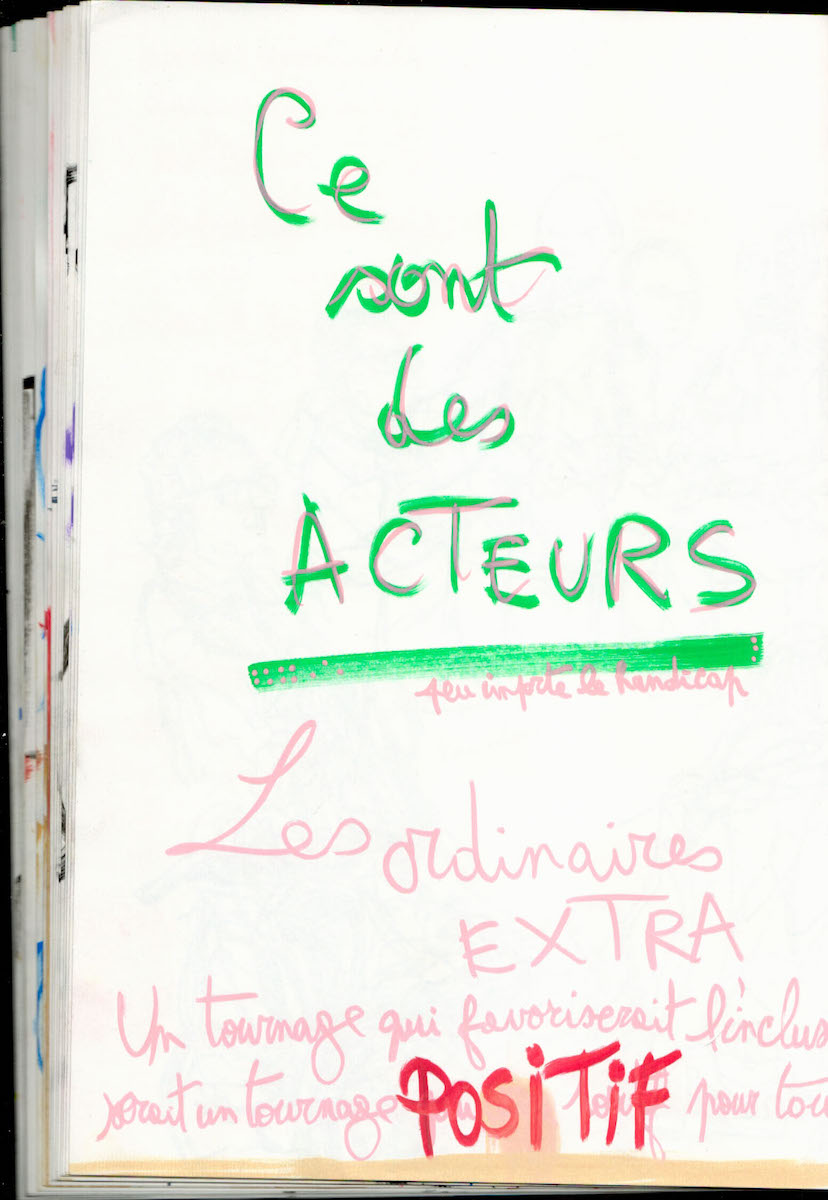 Ce
sont
des
ACTEURS
peu importe le handicap
Les ordinaires
EXTRA
Un tournage qui favoriserait l'inclus
serait un tournage POSITIF pour tou